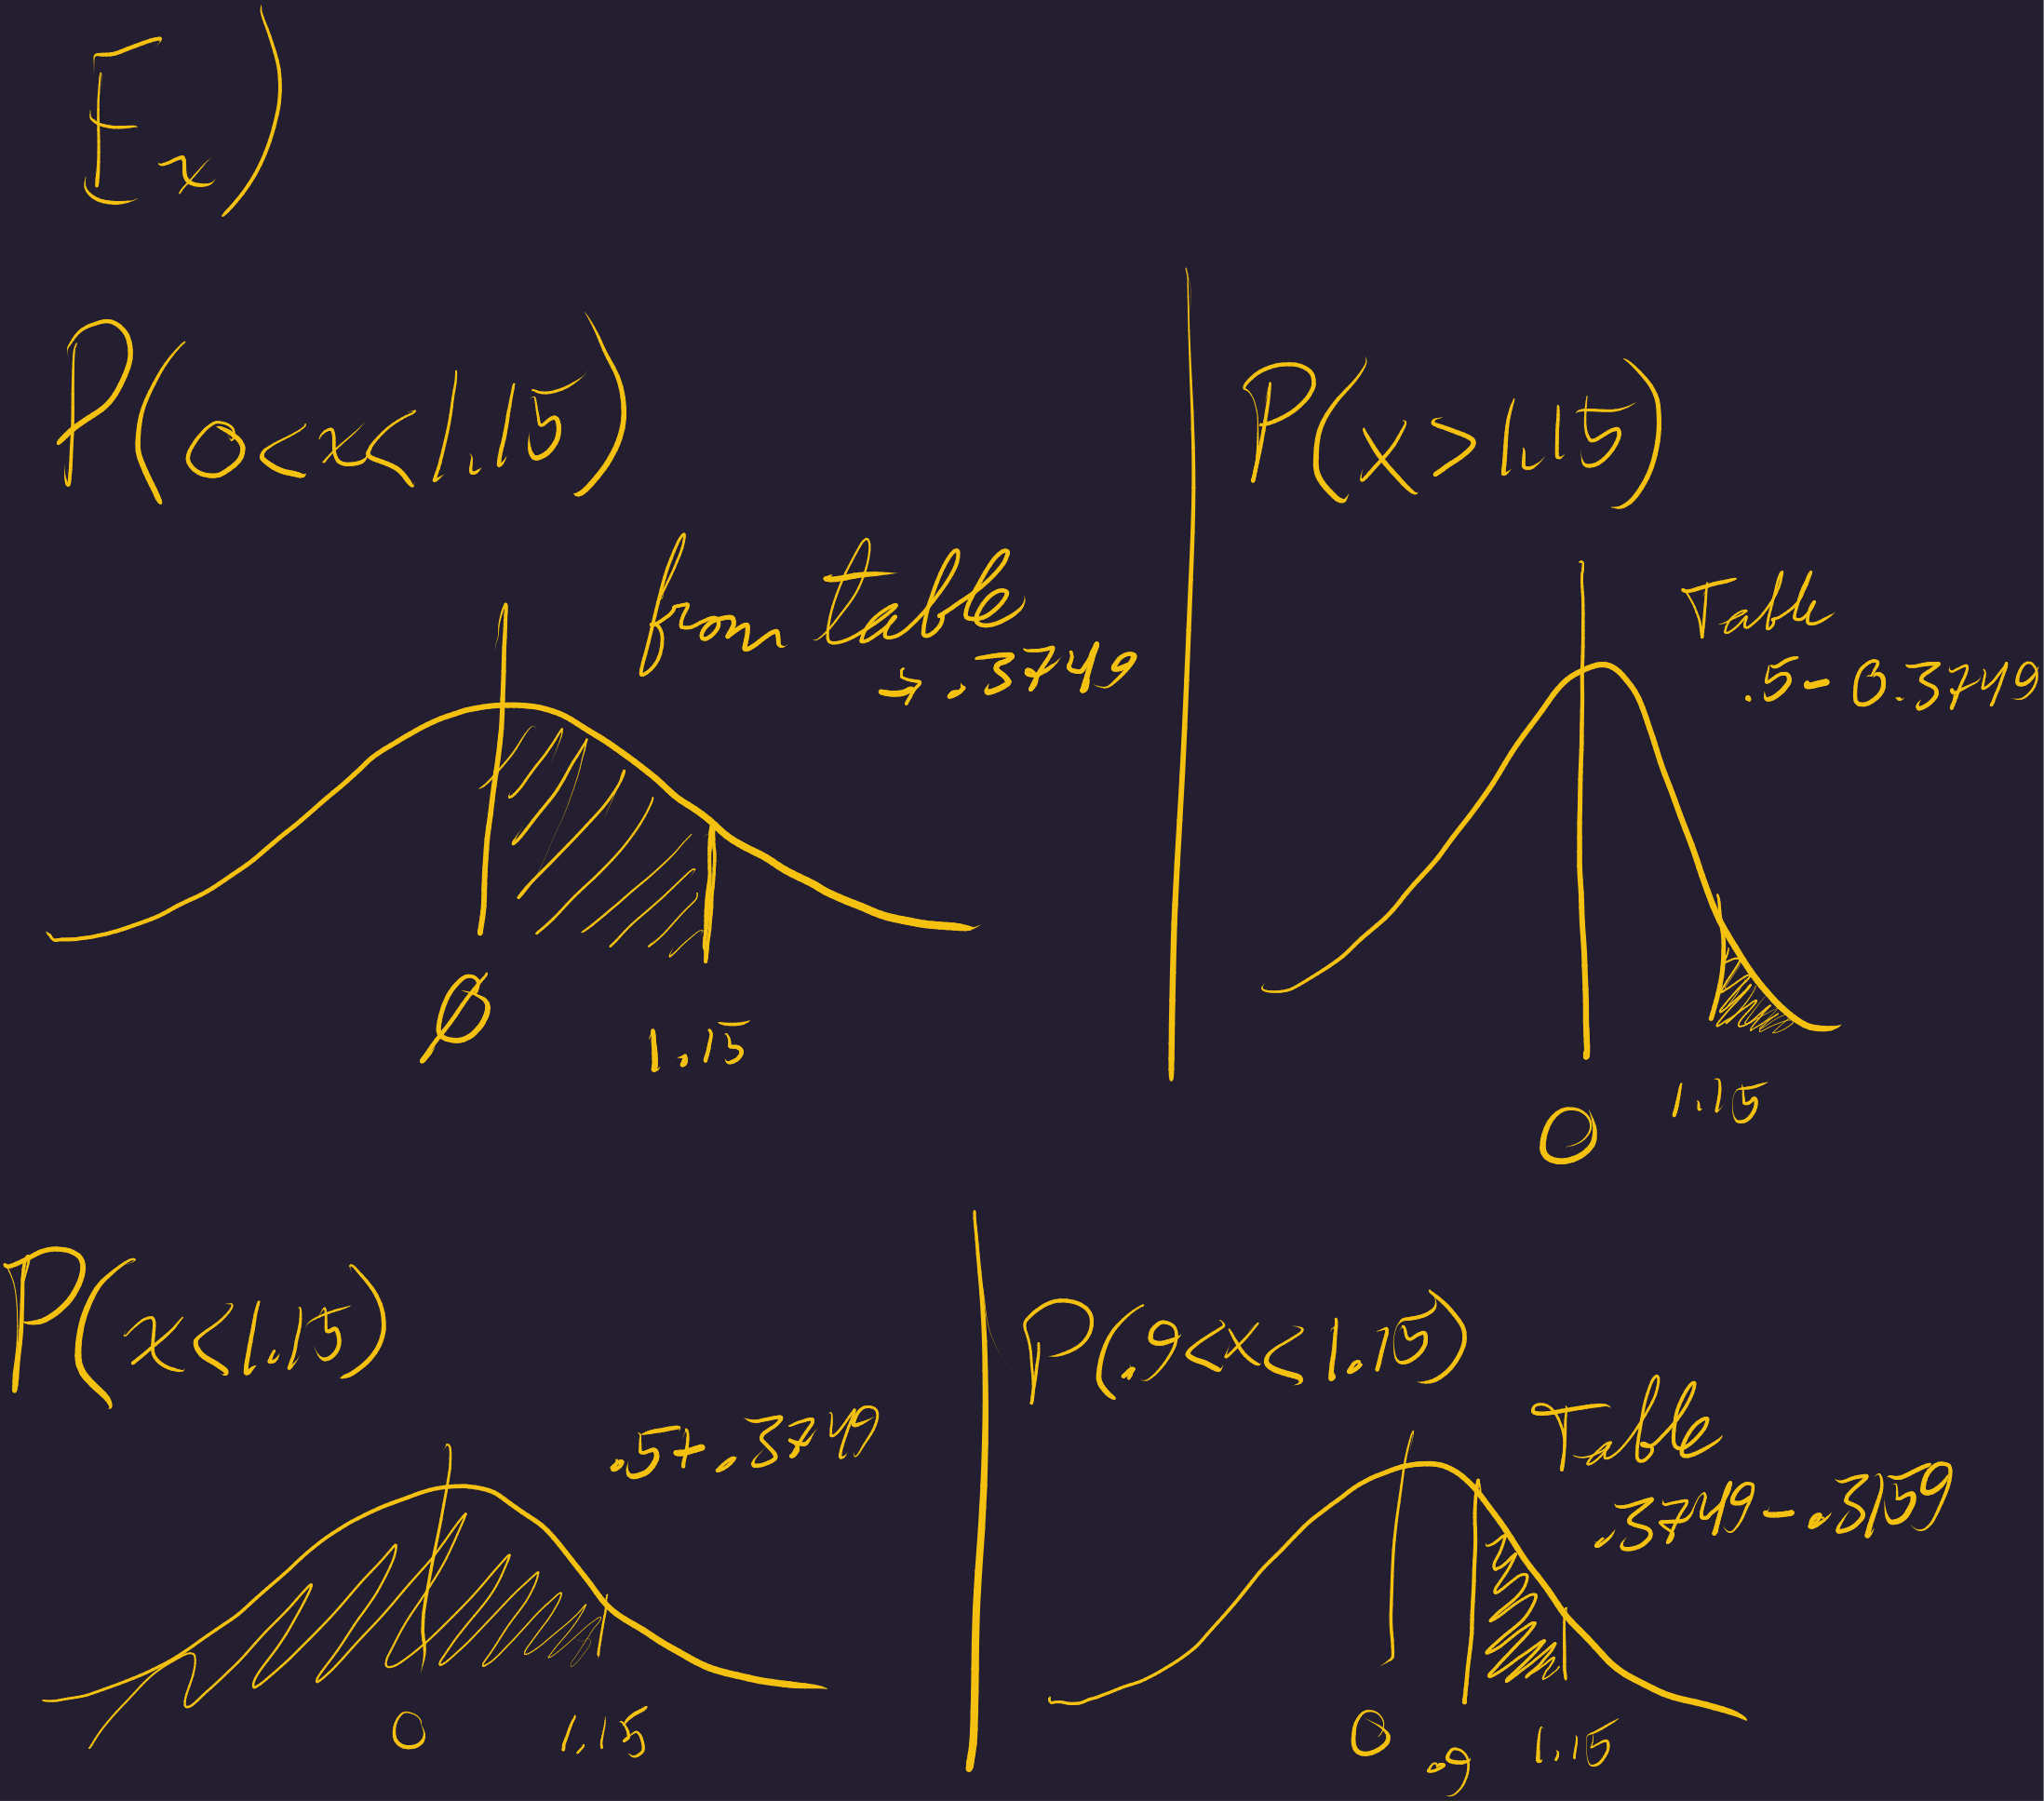 Ex)
P(0<x<1.15)
from table
→ .3749
Ø
1.15
P(x>1.15)
Table
.5-0.3749
0
1.15
P(x<1.15)
.5+.3749
0
1.15
P(.9<x<1.15)
Table
.3749-.3159
0
.9
1.15